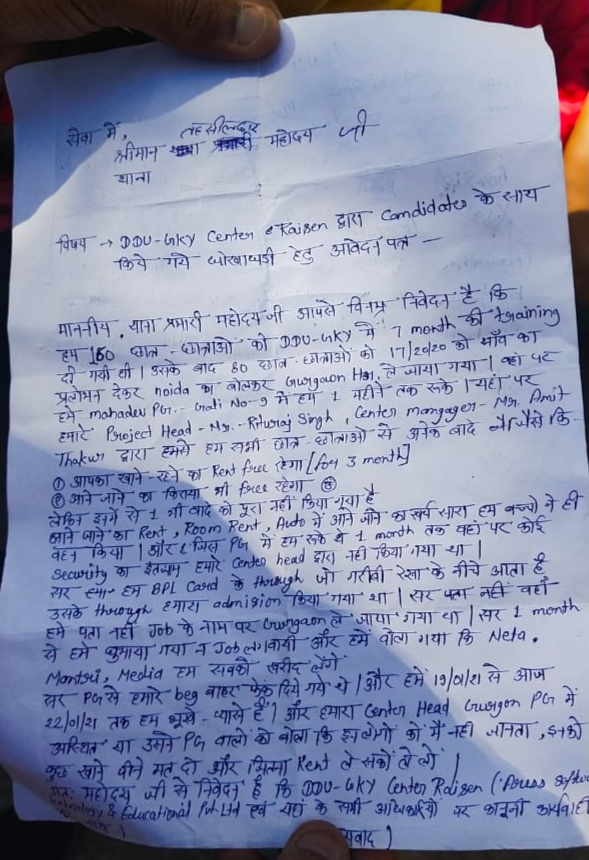 सेवा में,
तहसीलदार
श्रीमान थाना प्रभारी महोदय जी
थाना
विषय → DDU-GKY Center Raisen द्वारा Candidates के साथ
किये गये धोखाधडी हेतु आवेदन पत्र —
माननीय, थाना प्रभारी महोदय जी आपसे विनम्र निवेदन है कि
हम 150 छात्र-छात्राओं को DDU-GKY में 7 month की training
दी गयी थी। उसके बाद 80 छात्र-छात्राओं को 17/20/20 को जॉब का
प्रलोभन देकर noida का बोलकर Gurgaon ले जाया गया। वहां पर
हमे mahadev PG.- Gali No-9 में हम 1 महीने तक रूके। यहां पर
हमारे Project Head - Mr. Rituraj Singh, Center mangager - Mr. Amit
Thakur द्वारा हमसे हम सभी छात्र-छात्राओं से अनेक वादे जैसे कि-
① आपका खाने-रहने का Rent free रहेगा [for 3 month]
② आने जाने का किराया भी free रहेगा
लेकिन इनमें से 1 भी वादे को पूरा नहीं किया गया है
आने जाने का Rent, Room Rent, Auto में आने जाने का खर्च सारा हम बच्चो ने ही
वहन किया। और जिस PG में हम रूके थे 1 month तक वहां पर कोई
Security का इंतजाम हमारे Center head द्वारा नहीं किया गया था।
सर हम BPL Card के through जो गरीबी रेखा के नीचे आता है
उसके through हमारा admision किया गया था। सर पता नहीं वहां
हमे पता नहीं Job के नाम पर Gurugaon ले जाया गया था। सर 1 month
से हमे घुमाया गया न Job लगवायी और हमें बोला गया कि Neta,
Mantri, Media हम सबको खरीद लेंगे
सर PG से हमारे beg बाहर फेंक दिये गये थे। और हमें 19/01/21 से आज
22/01/21 तक हम भूखे-प्यासे हैं। और हमारा Center Head Gurgaon PG में
उपस्थित था उसने PG वालों को बोला कि इन लोगों को मैं नहीं जानता, इनको
कुछ खाने पीने मत दो और जितना Rent ले सको ले लो।
अतः महोदय जी से निवेदन है कि DDU-GKY Center Raisen
& Educational Pvt. Ltd एवं यहां के सभी अधिकारियों पर कानूनी कार्यवाही